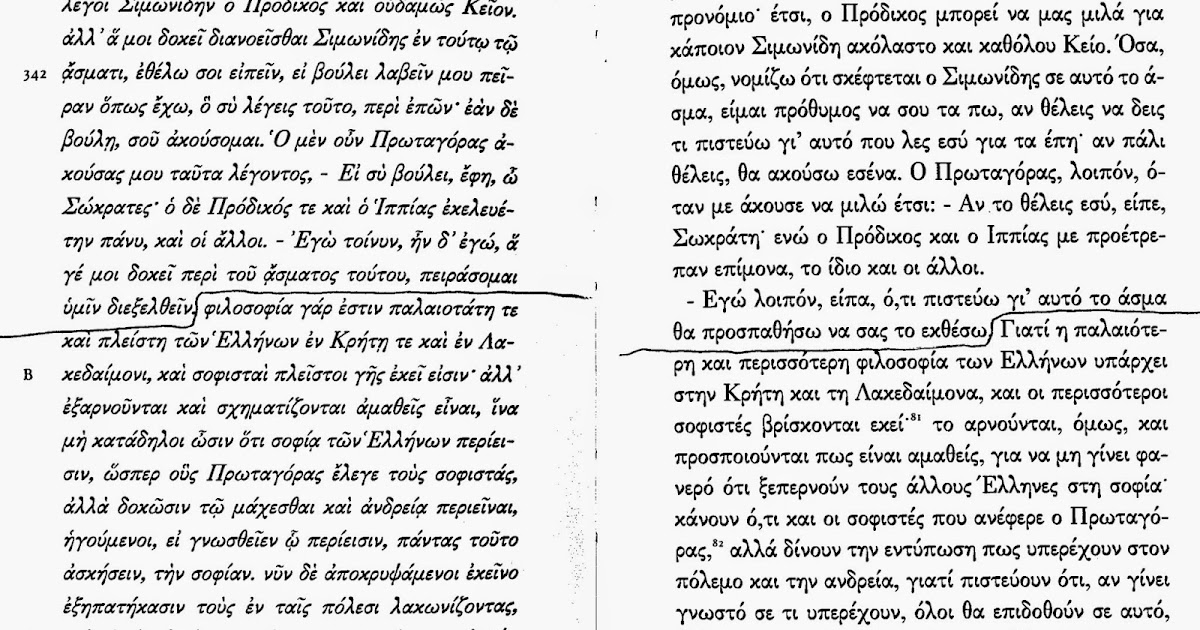 λέγοι Σιμωνίδην ὁ Πρόδικος καὶ οὐδαμῶς Κεῖον.
ἀλλ' ἅ μοι δοκεῖ διανοεῖσθαι Σιμωνίδης ἐν τούτῳ τῷ
342 ᾄσματι, ἐθέλω σοι εἰπεῖν, εἰ βούλει λαβεῖν μου πεῖ-
ραν ὅπως ἔχω, ὃ σὺ λέγεις τοῦτο, περὶ ἐπῶν· ἐὰν δὲ
βούλῃ, σοῦ ἀκούσομαι. Ὁ μὲν οὖν Πρωταγόρας ἀ-
κούσας μου ταῦτα λέγοντος, - Εἰ σὺ βούλει, ἔφη, ὦ
Σώκρατες· ὁ δὲ Πρόδικός τε καὶ ὁ Ἱππίας ἐκελευέ-
την πάνυ, καὶ οἱ ἄλλοι. - Ἐγὼ τοίνυν, ἦν δ' ἐγώ, ἅ
γέ μοι δοκεῖ περὶ τοῦ ᾄσματος τούτου, πειράσομαι
ὑμῖν διεξελθεῖν. φιλοσοφία γάρ ἐστιν παλαιοτάτη τε
καὶ πλείστη τῶν Ἑλλήνων ἐν Κρήτῃ τε καὶ ἐν Λα-
Β κεδαίμονι, καὶ σοφισταὶ πλεῖστοι γῆς ἐκεῖ εἰσιν· ἀλλ'
ἐξαρνοῦνται καὶ σχηματίζονται ἀμαθεῖς εἶναι, ἵνα
μὴ κατάδηλοι ὦσιν ὅτι σοφίᾳ τῶν Ἑλλήνων περίει-
σιν, ὥσπερ οὓς Πρωταγόρας ἔλεγε τοὺς σοφιστάς,
ἀλλὰ δοκῶσιν τῷ μάχεσθαι καὶ ἀνδρείᾳ περιεῖναι,
ἡγούμενοι, εἰ γνωσθεῖεν ᾧ περίεισιν, πάντας τοῦτο
ἀσκήσειν, τὴν σοφίαν. νῦν δὲ ἀποκρυψάμενοι ἐκεῖνο
ἐξηπατήκασιν τοὺς ἐν ταῖς πόλεσι λακωνίζοντας,
προνόμιο· έτσι, ο Πρόδικος μπορεί να μας μιλά για
κάποιον Σιμωνίδη ακόλαστο και καθόλου Κείο. Όσα,
όμως, νομίζω ότι σκέφτεται ο Σιμωνίδης σε αυτό το ά-
σμα, είμαι πρόθυμος να σου τα πω, αν θέλεις να δεις
τι πιστεύω γι' αυτό που λες εσύ για τα έπη· αν πάλι
θέλεις, θα ακούσω εσένα. Ο Πρωταγόρας, λοιπόν, ό-
ταν με άκουσε να μιλώ έτσι: - Αν το θέλεις εσύ, είπε,
Σωκράτη· ενώ ο Πρόδικος και ο Ιππίας με προέτρε-
παν επίμονα, το ίδιο και οι άλλοι.
- Εγώ λοιπόν, είπα, ό,τι πιστεύω γι' αυτό το άσμα
θα προσπαθήσω να σας το εκθέσω. Γιατί η παλαιότε-
ρη και περισσότερη φιλοσοφία των Ελλήνων υπάρχει
στην Κρήτη και τη Λακεδαίμονα, και οι περισσότεροι
σοφιστές βρίσκονται εκεί·⁸¹ το αρνούνται, όμως, και
προσποιούνται πως είναι αμαθείς, για να μη γίνει φα-
νερό ότι ξεπερνούν τους άλλους Έλληνες στη σοφία·
κάνουν ό,τι και οι σοφιστές που ανέφερε ο Πρωταγό-
ρας,⁸² αλλά δίνουν την εντύπωση πως υπερέχουν στον
πόλεμο και την ανδρεία, γιατί πιστεύουν ότι, αν γίνει
γνωστό σε τι υπερέχουν, όλοι θα επιδοθούν σε αυτό,